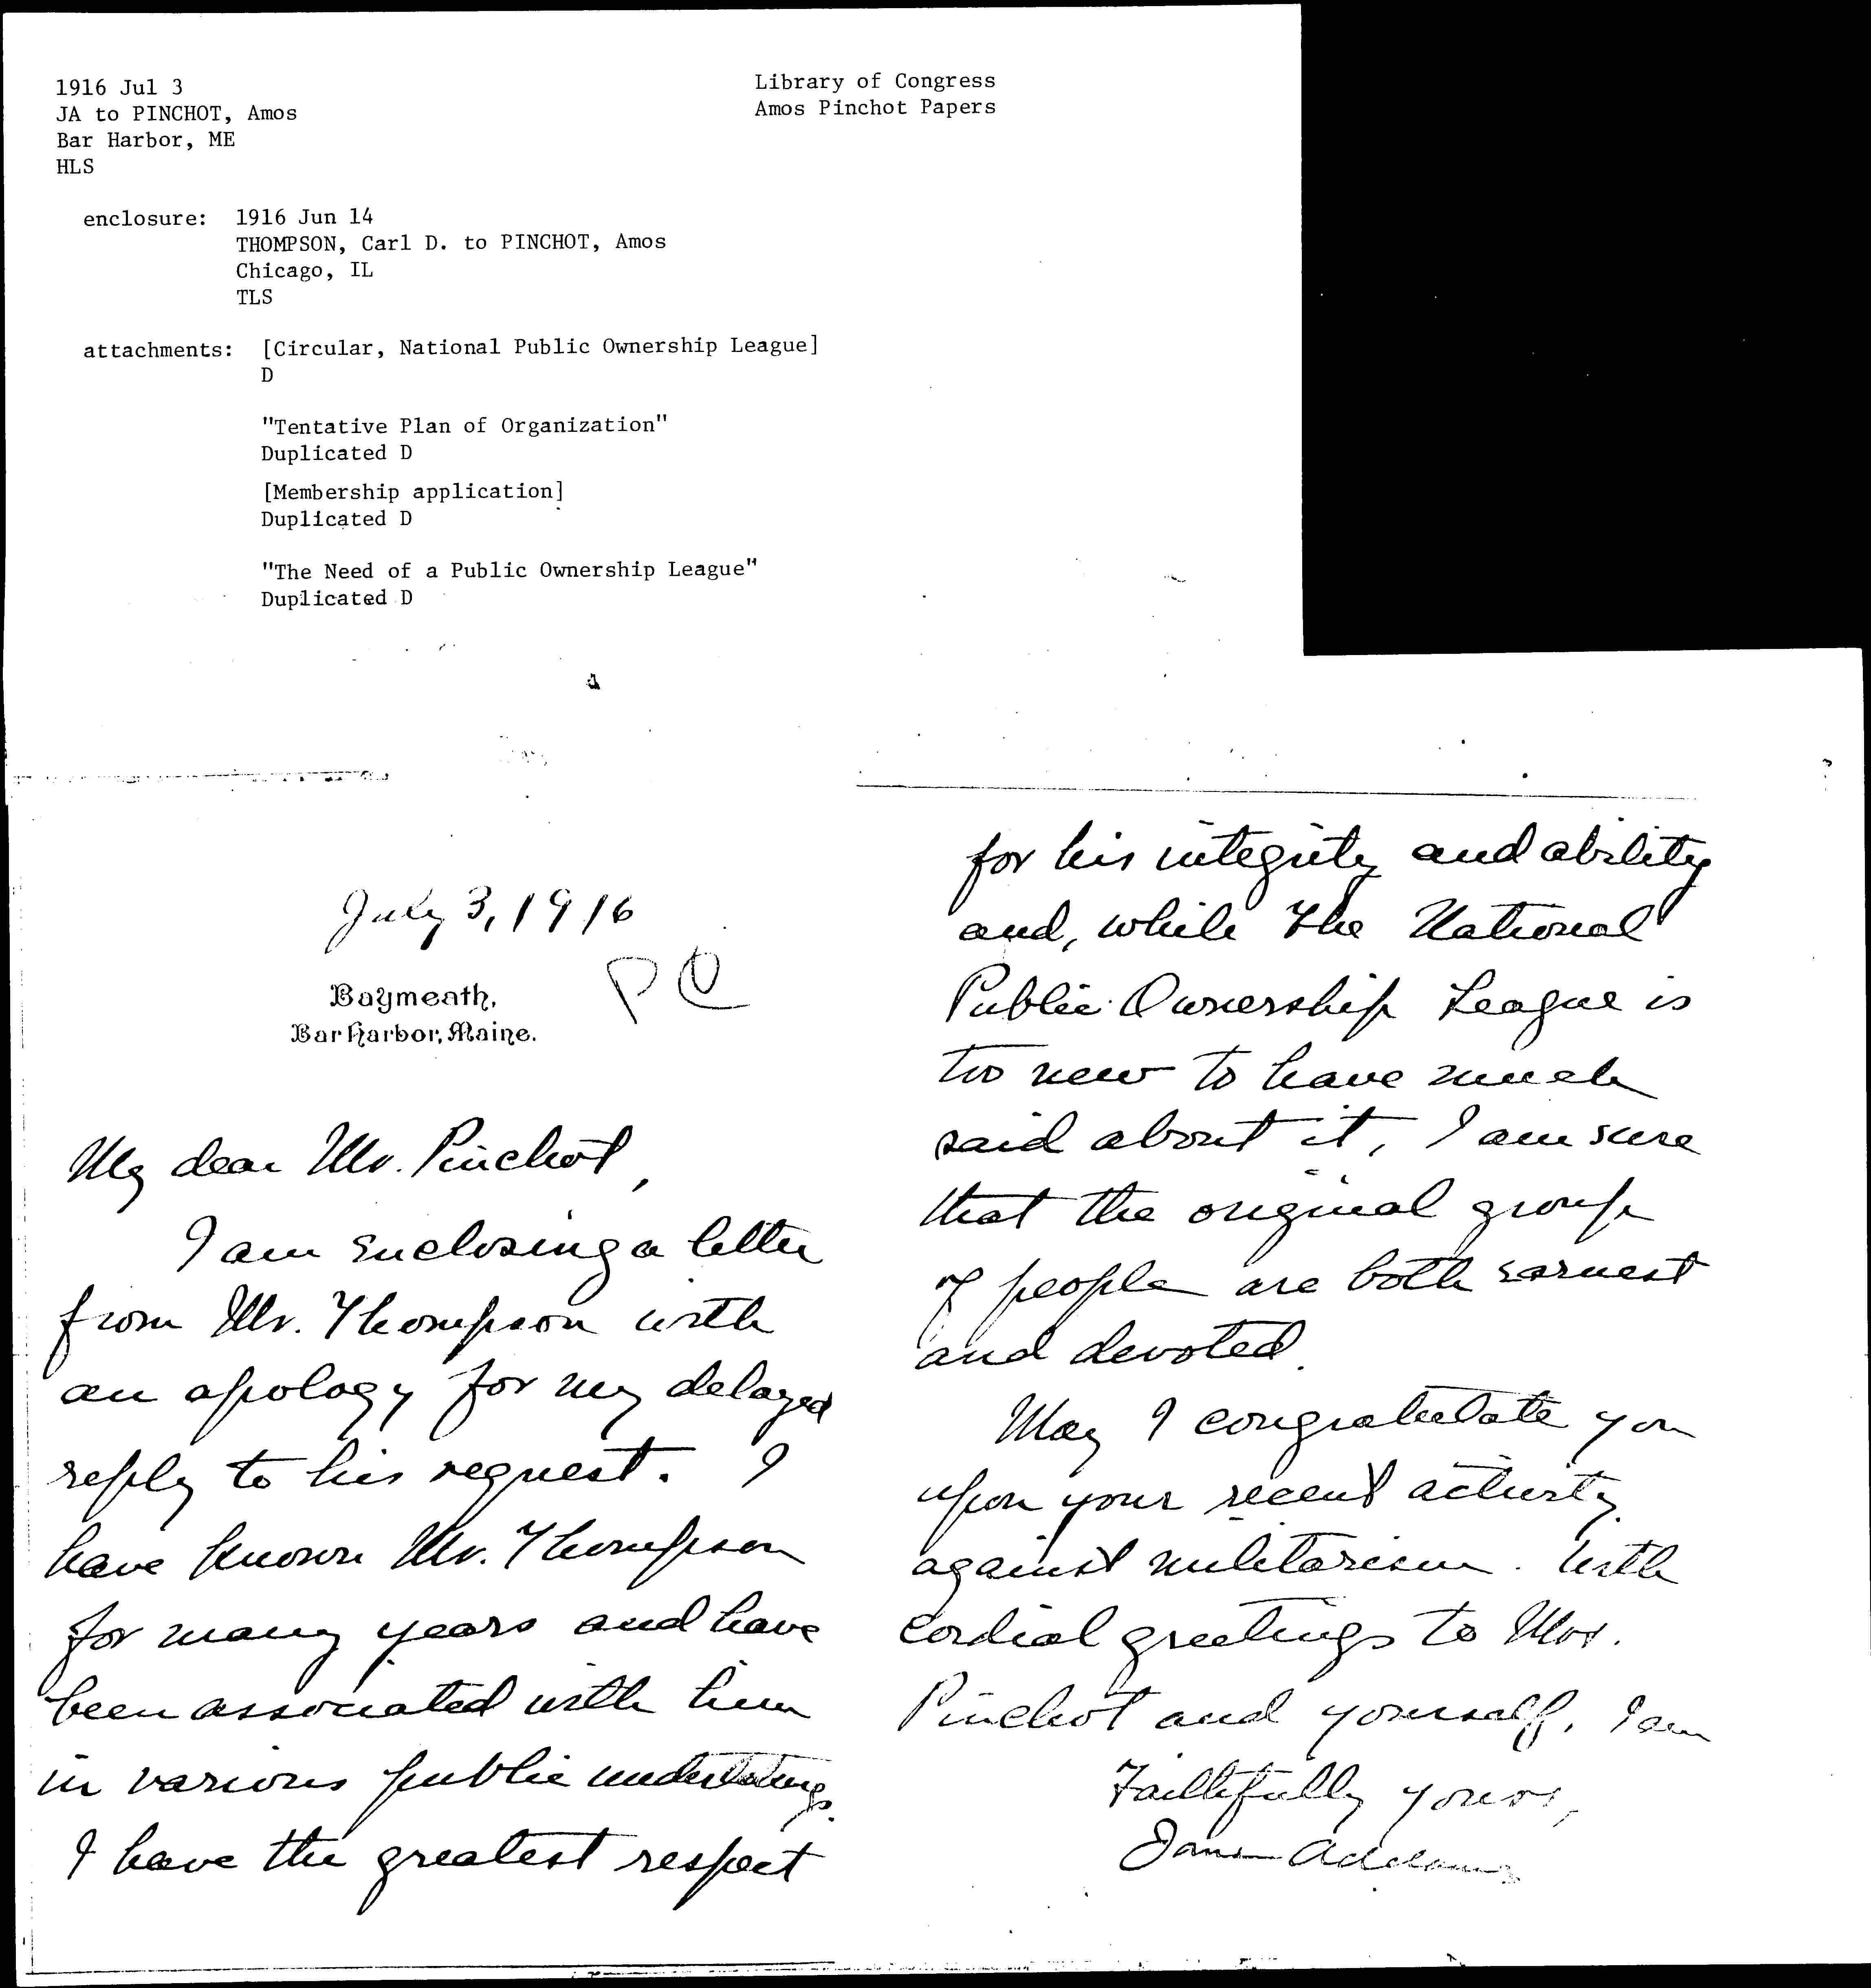 1916 Jul 3
JA to PINCHOT, Amos
Bar Harbor, ME
HLS
Library of Congress
Amos Pinchot Papers
enclosure: 1916 Jun 14
THOMPSON, Carl D. to PINCHOT, Amos
Chicago, IL
TLS
attachments: [Circular, National Public Ownership League]
D
"Tentative Plan of Organization"
Duplicated D
[Membership application]
Duplicated D
"The Need of a Public Ownership League"
Duplicated D
July 3, 1916
PC
Baymeath,
Bar Harbor, Maine.
My dear Mr. Pinchot,
I am enclosing a letter
from Mr. Thompson with
an apology for my delayed
reply to his request. I
have known Mr. Thompson
for many years and have
been associated with him
in various public undertakings.
I have the greatest respect
for his integrity and ability
and, while the National
Public Ownership League is
too new to have much
said about it, I am sure
that the original group
of people are both earnest
and devoted.
May I congratulate you
upon your recent activity
against militarism. With
cordial greetings to Mrs.
Pinchot and yourself, I am
Faithfully yours,
Jane Addams